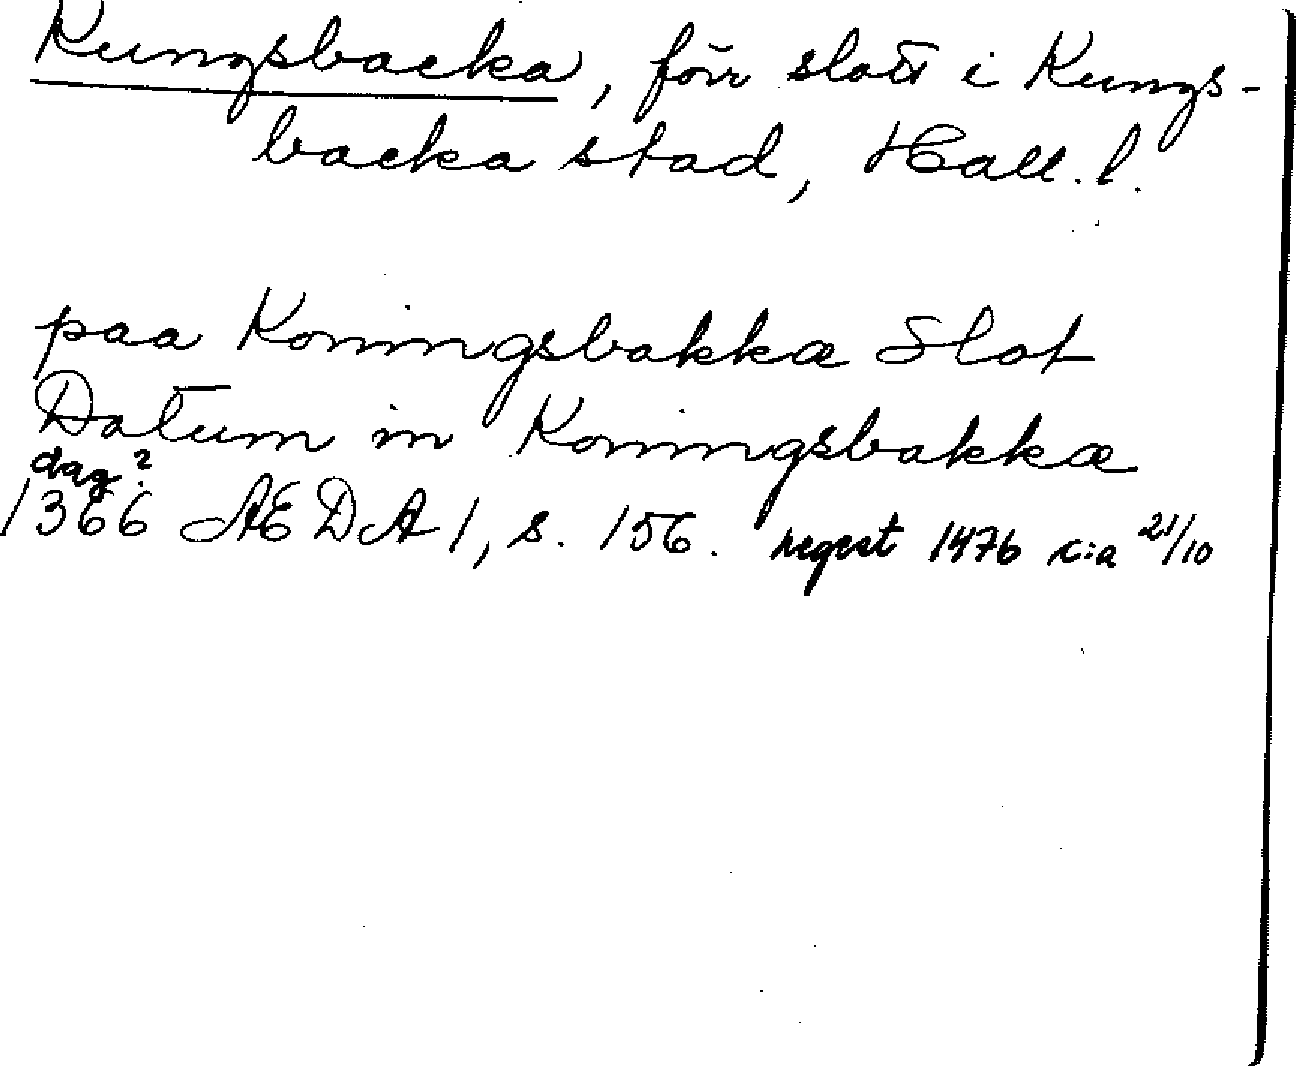 Kungsbacka, förr slott i Kungs-
backa stad, Hall. l.
paa Koningsbakka Slot
Datum in Koningsbakka
dag?
1366 ÆDA 1, s. 156. regest 1476 c:a 21/10